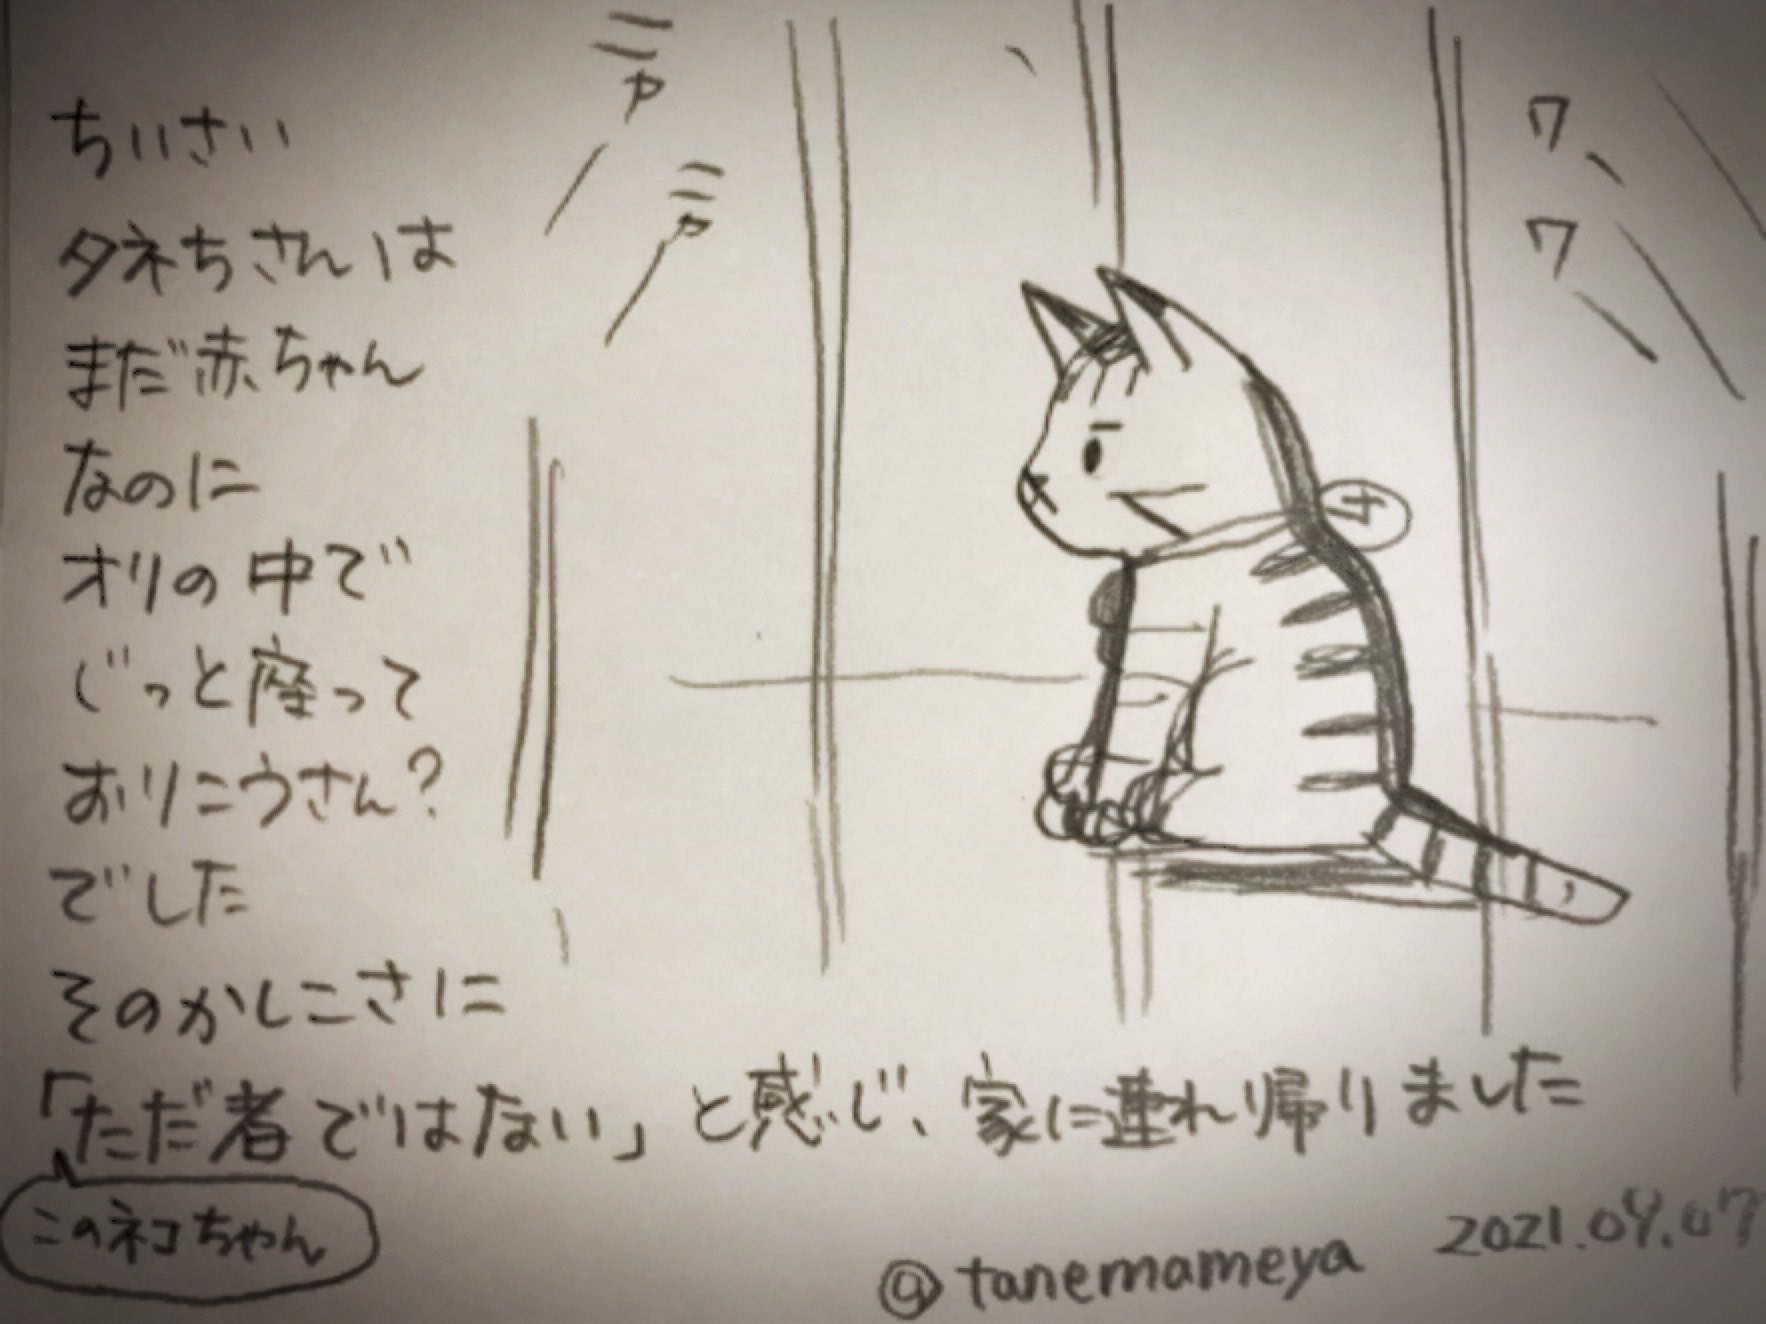 ちいさい
タネちさんは
まだ赤ちゃん
なのに
オリの中で
じっと座って
おりこうさん?
でした
そのかしこさに
「ただ者ではない」と感じ、家に連れ帰りました
このネコちゃん
ニャ
ニャ
ワ
ワ
4
@tanemameya
2021.09.07